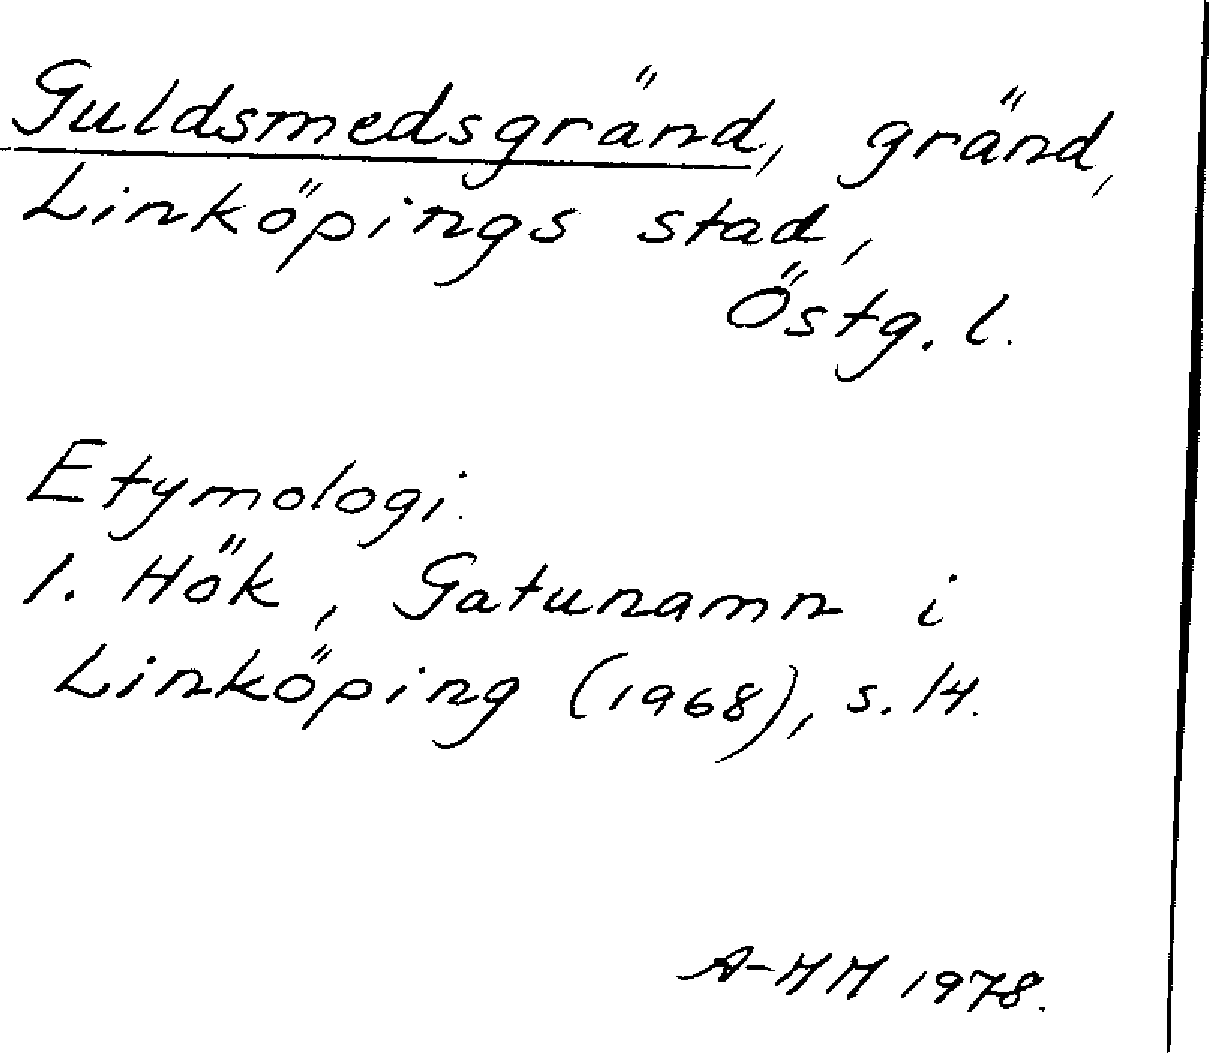 Guldsmedsgränd, gränd,
Linköpings stad,
Östg. l.
Etymologi.
1. Hök, Gatunamn i
Linköping (1968), s. 14.
A-MM 1978.